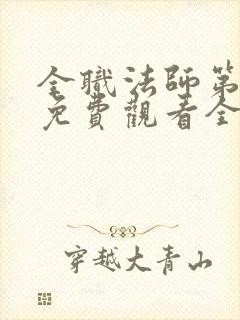 全職法師第
免費觀看全
穿越大青山